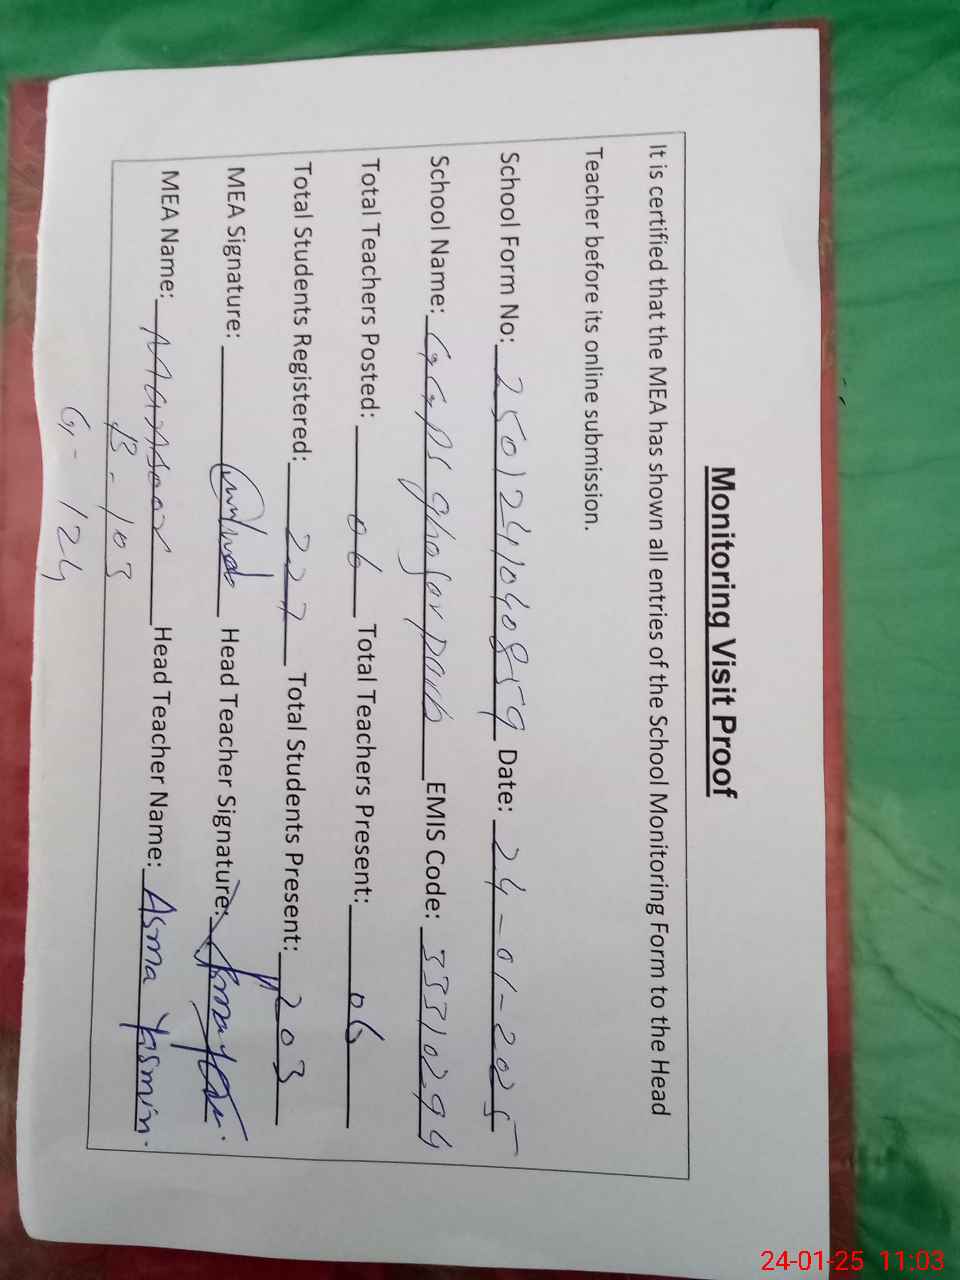 Monitoring Visit Proof
It is certified that the MEA has shown all entries of the School Monitoring Form to the Head
Teacher before its online submission.
School Form No: 2501241040859 Date: 24-01-2025
School Name: GGPS ghafar EMIS Code: 33310294
Total Teachers Posted: 06 Total Teachers Present: 06
Total Students Registered: 227 Total Students Present: 203
MEA Signature: Head Teacher Signature:
MEA Name: Mansoor Head Teacher Name: Asma Yasmin.
B-103
G-124
24-01-25 11:03